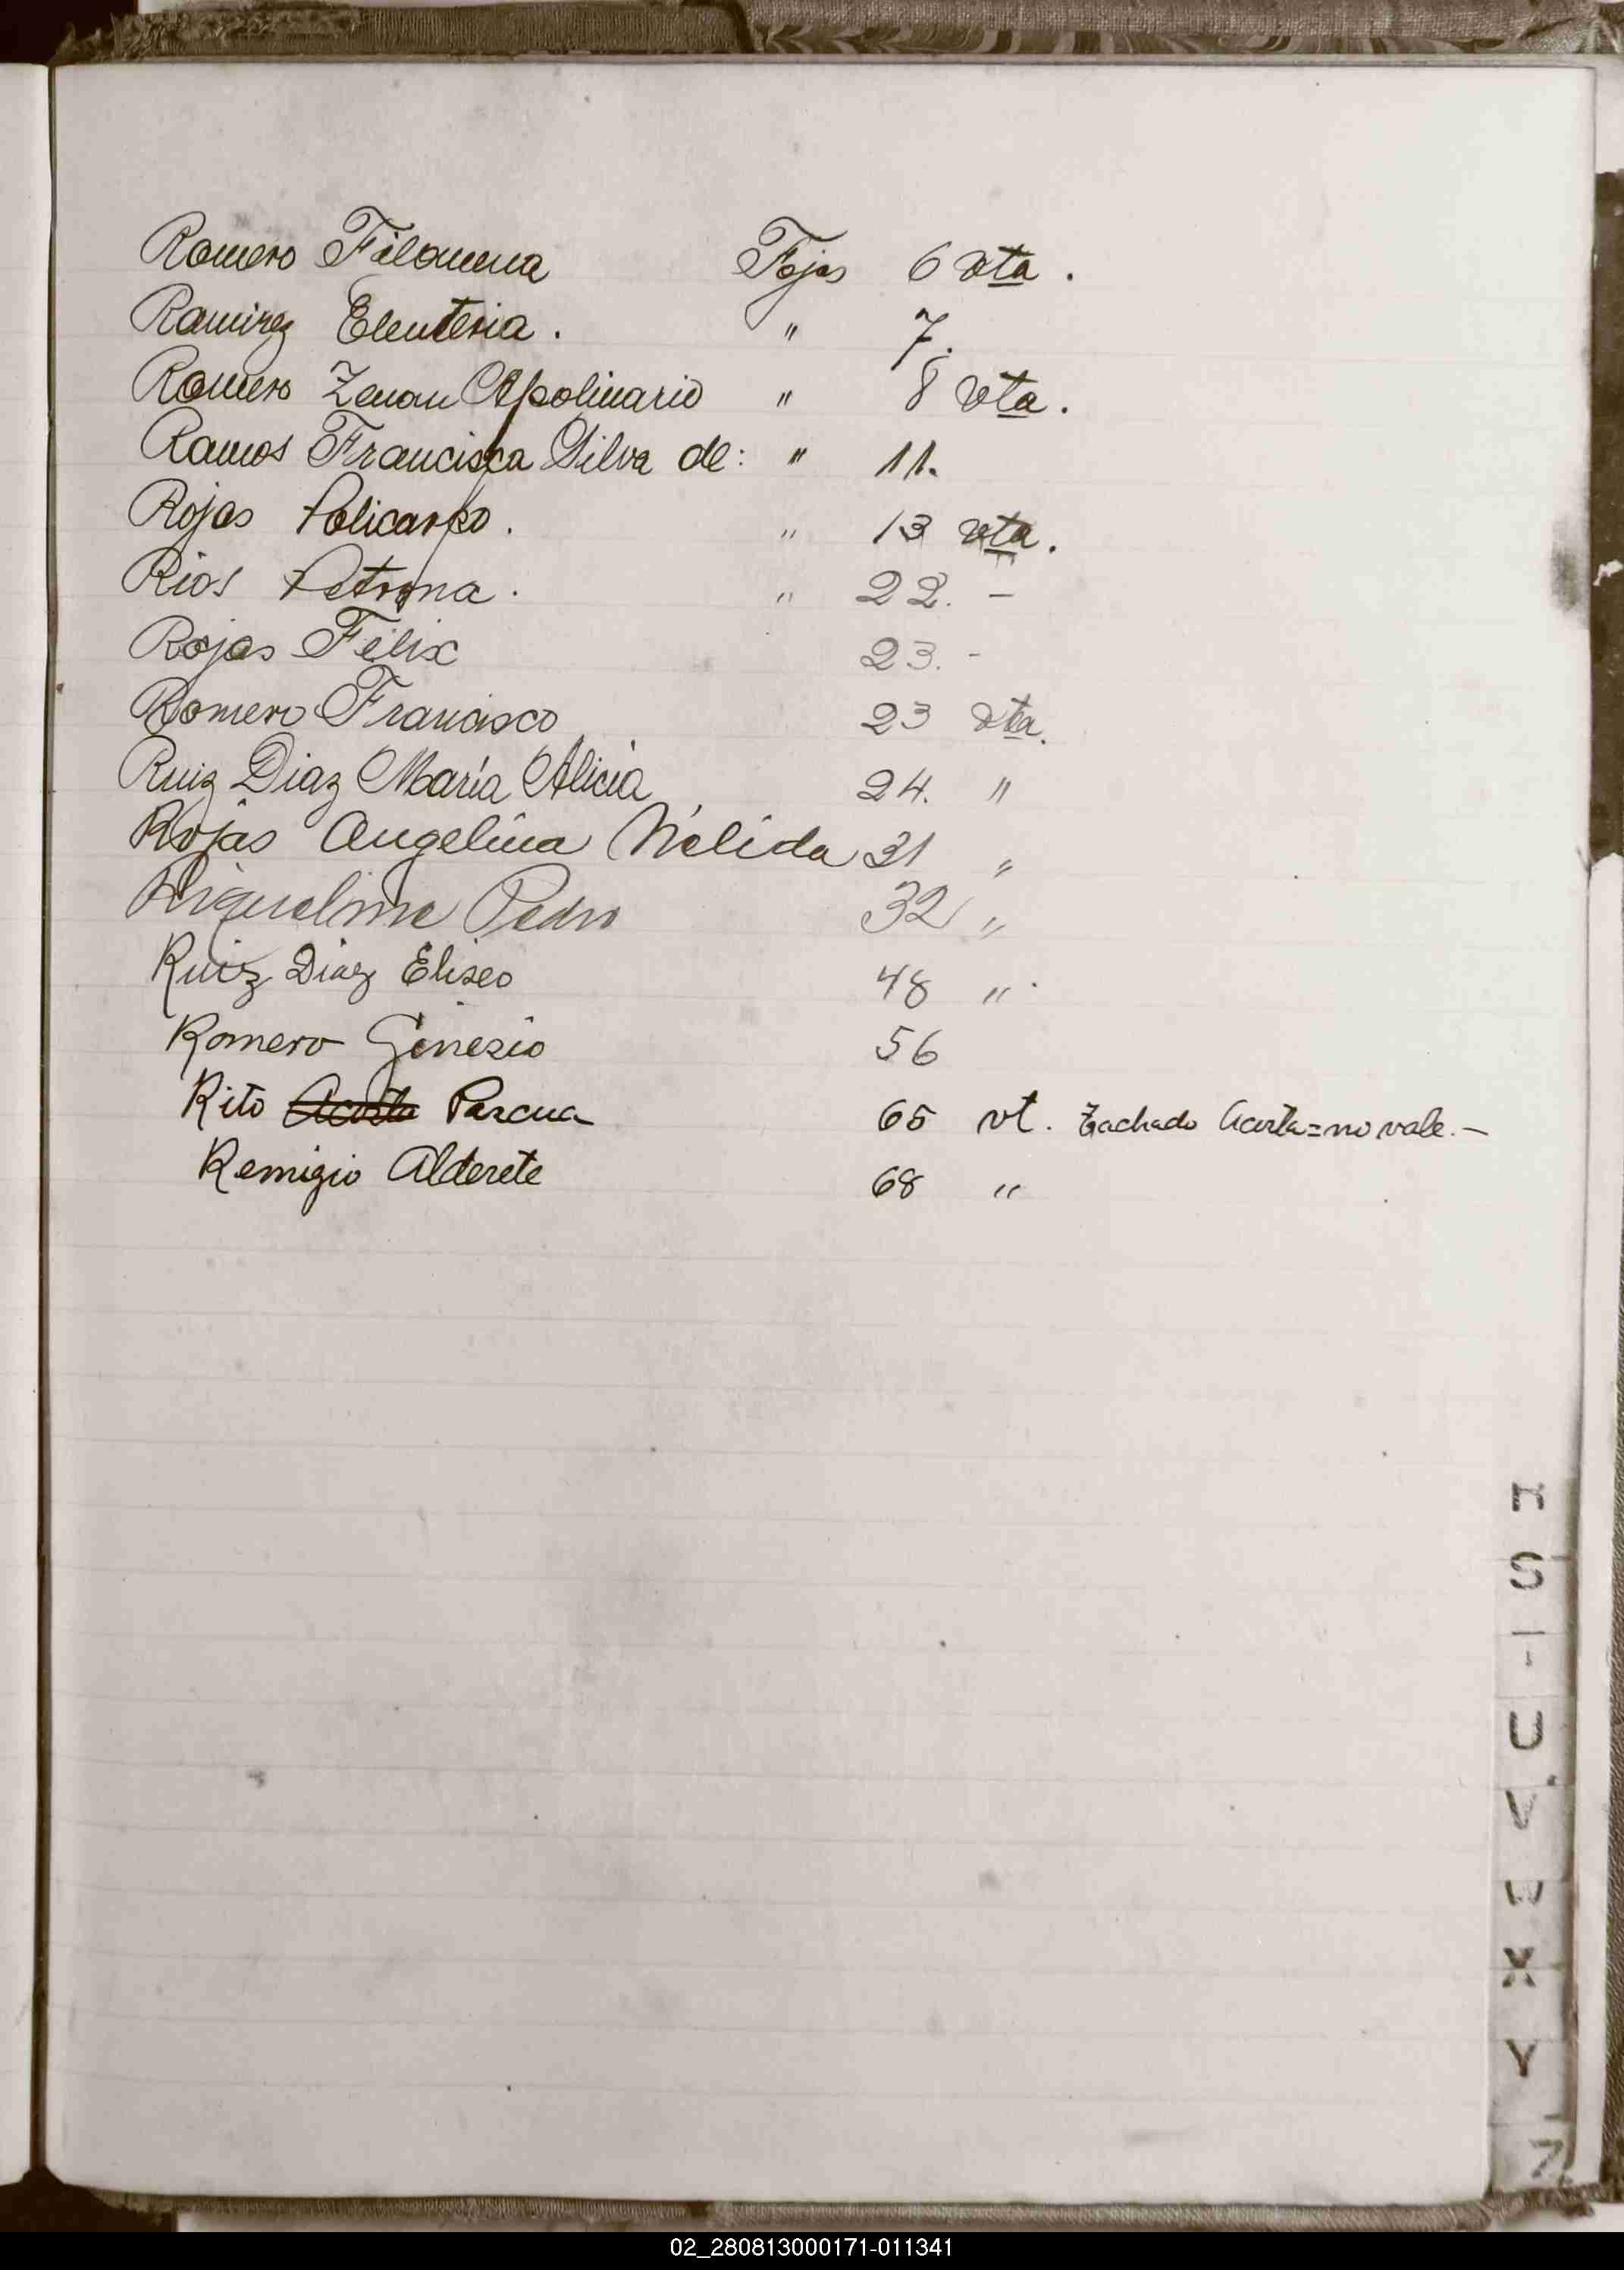 Romero Filomena Fojas 6 vta.
Ramirez Eleuteria. " 7.
Romero Zenon Apolinario " 8 vta.
Ramos Francisca Silva de: " 11.
Rojas Policarpo. " 13 vta.
Rios Petrona. " 22. -
Rojas Félix 23. -
Romero Francisco 23 vta.
Ruiz Diaz María Alicia 24. "
Rojas Angelina Nélida 31 "
Riquelme Pedro 32 "
Ruiz Diaz Eliseo 48 ".
Romero Ginesio 56
Rito Acosta Pascua 65 vt. Tachado Acosta=no vale.-
Remigio Alderete 68 "
R
S
T
U
V
W
X
Y
Z
02_280813000171-011341